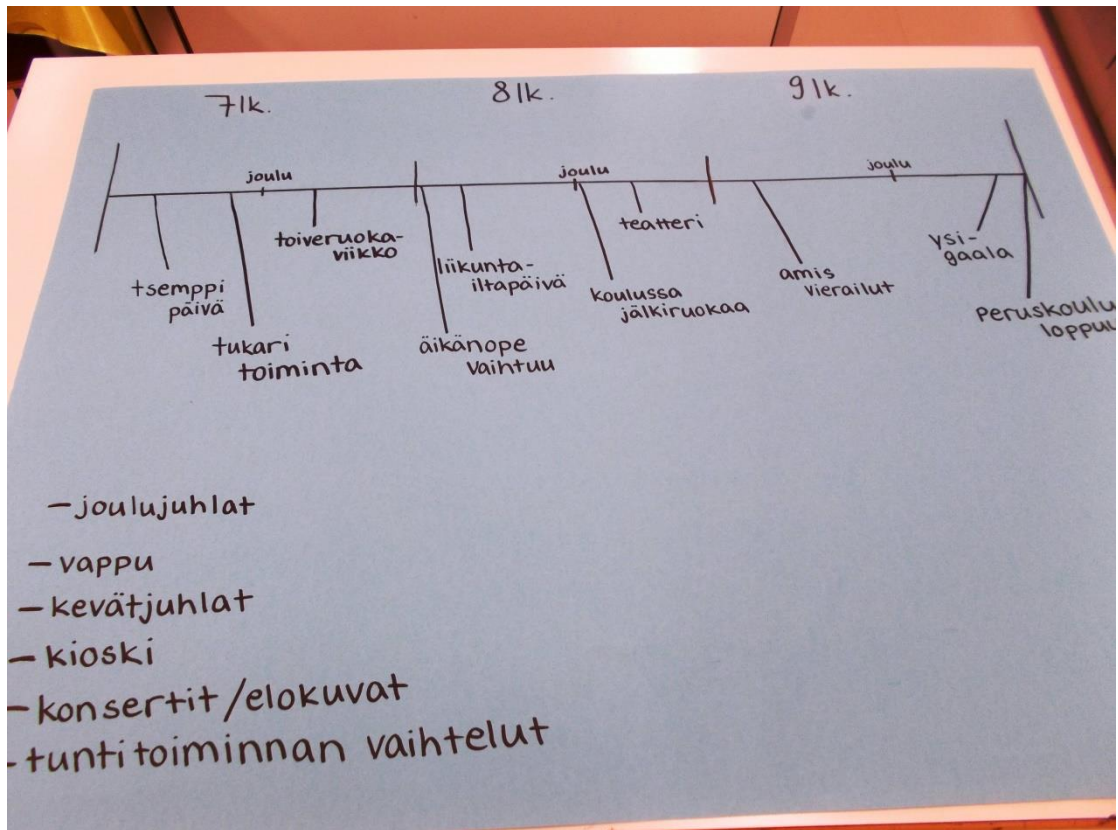 7 lk.
8 lk.
9 lk.
joulu
joulu
joulu
tsemppi
päivä
tukari
toiminta
toiveruoka-
viikko
äikänope
vaihtuu
liikunta-
iltapäivä
koulussa
jälkiruokaa
teatteri
amis
vierailut
ysi-
gaala
Peruskoulu
loppuu
- joulujuhlat
- vappu
- kevätjuhlat
- kioski
- konsertit/elokuvat
- tuntitoiminnan vaihtelut